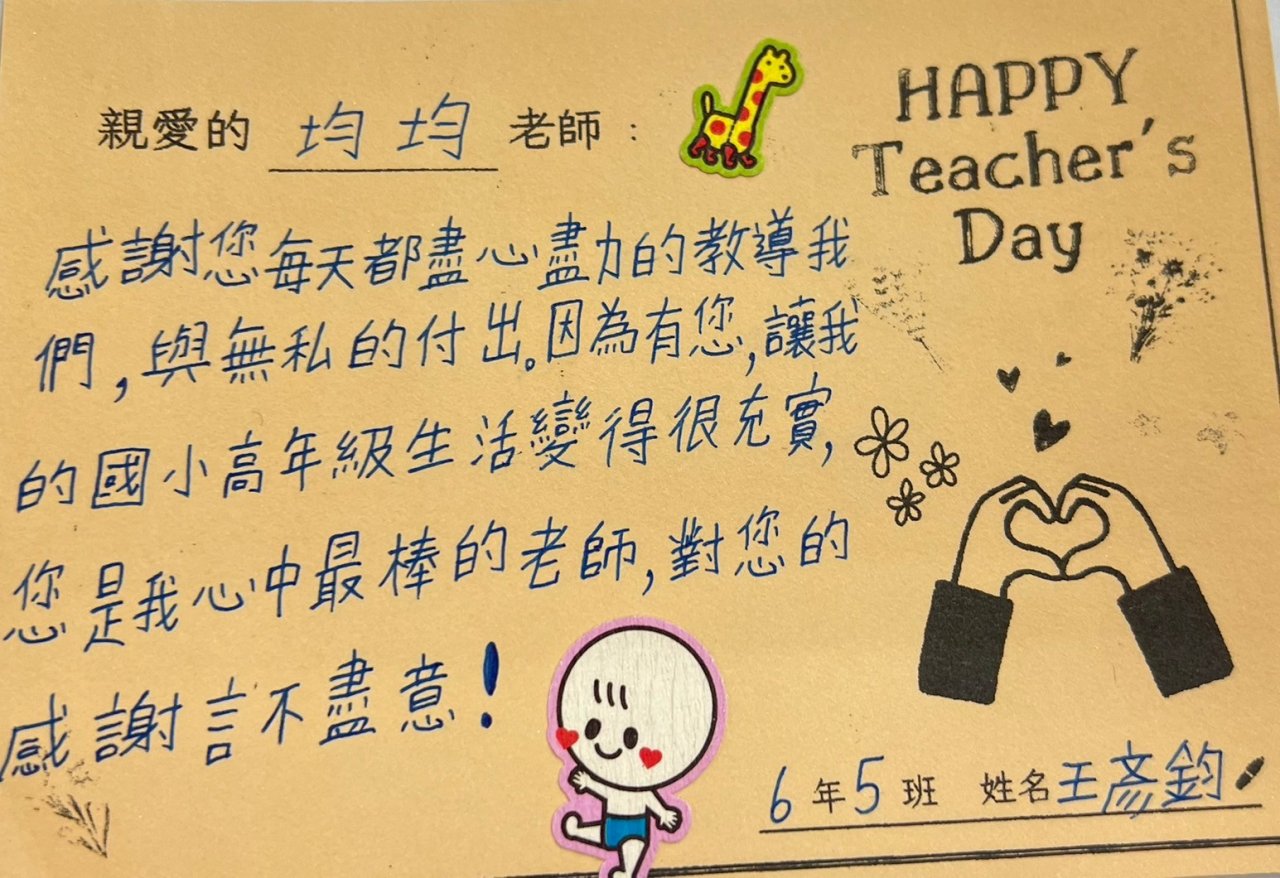 親愛的 均均 老師：
HAPPY
Teacher's
Day
感謝您每天都盡心盡力的教導我
們，與無私的付出。因為有您，讓我
的國小高年級生活變得很充實，
您是我心中最棒的老師，對您的
感謝言不盡意！
6年5班 姓名王彥鈞